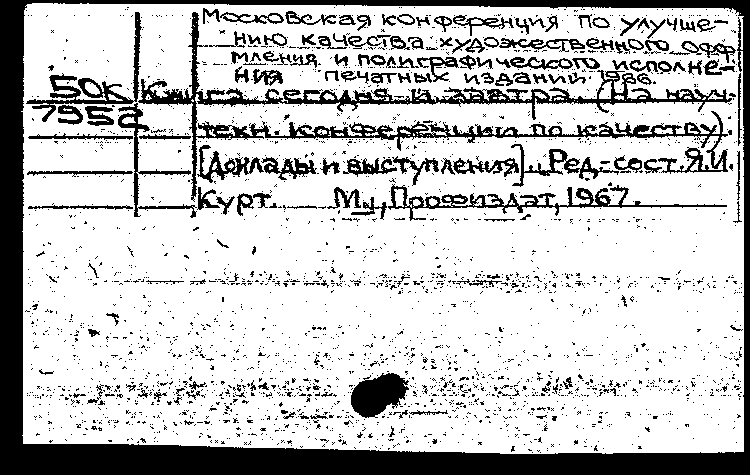 Московская конференция по улучше-
нию качества художественного офор
мления и полиграфического исполне-
ния печатных изданий. 1966.
50к Книга сегодня и завтра. (На науч.-
7952 техн. конференции по качеству).
[Доклады и выступления]. Ред.-сост. Я.И.
Курт. М., Профиздат, 1967.